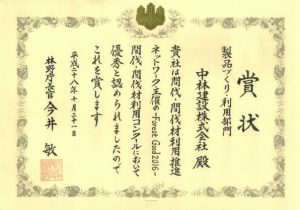 賞状
製品づくり・利用部門
中林建設株式会社 殿
貴社は間伐・間伐材利用推進
ネットワーク主催の「Forest Good 2016〜
間伐・間伐材利用コンクールにおいて
優秀と認められましたので
これを賞します
平成二十八年十月二十一日
林野庁長官 今井 敏